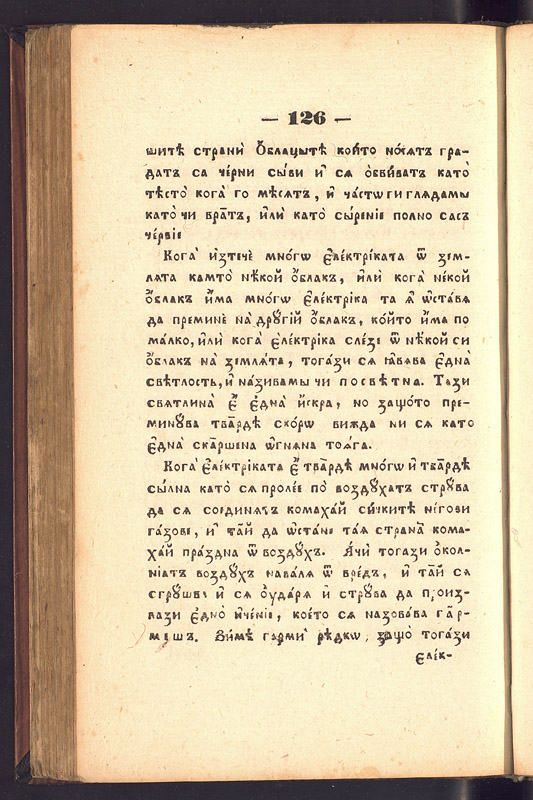 — 126 —
шитѣ странѝ О҆́блацытѣ кои́то но́сятъ гра-
датъ са че́рни сы́ви и҆ ся ѻ҆бви́ватъ като̀
тѣсто̀ кога̀ го мѣ́сятъ, и҆ ча́стѡ ги гля́дамы
като̀ чи вра̀тъ, и҆́ли като̀ сы́рение полно сасъ
че́рвіе
Кога̀ и҆зтечѐ мно́гѡ Е҆ле́ктріката ѿ зем-
лята камто̀ нѣ́кой о҆́блакъ, и҆́ли кога̀ не́кой
о҆́блакъ и҆́ма мно́гѡ Е҆ле́ктріка та ѧ҆̀ ѡ҆ста́вѧ
да преминѐ на̀ дрꙋ́гій о҆́блакъ, ко́йто и҆́ма по
ма́лко, и҆́ли кога̀ Е҆ле́ктріка сле́зе ѿ нѣ́кой си
о҆́блакъ на̀ землѧ́та, тога́зи ся ꙗ҆вѧва Е҆дна̀
свѣ́тлость, и҆ на́зивамы чи посвѣтна. Тази
святлина̀ Е҆̀ Е҆дна̀ и҆́скра, но защо́то пре-
минꙋ́ва тва̀рдѣ ско́рѡ вижда ни ся като
Е҆дна̀ ска̀ршена ѡ҆гнѧна тоѧ́га.
Кога̀ Е҆ле́ктріката Е҆̀ тва̀рдѣ мно́гѡ и҆ тва̀рдѣ
сы́лна като̀ ся проле́е по̀ во́здꙋ́хатъ стрꙋ́ва
да ся соединѧтъ комаха́й си́чките не́гови
га́зове, и҆ та́й да ѡ҆ста́не таѧ страна̀ кома-
ха́й пра́здна ѿ во́здꙋ́хъ. А҆́чѝ тогази о҆́кол-
ніатъ воздꙋ́хъ навалѧ ѿ вре́дъ, и҆ та́й ся
сгрꙋ́шва и҆ ся оу҆да́рѧ и҆ стрꙋ́ва да произ-
лази Е҆дно̀ и҆че́ніе, кое́то ся назова́ва га̀р-
мешъ. Зи́мѣ гармѝ рѣ́дкѡ, защо̀ тога́зи
Е҆ле́к-